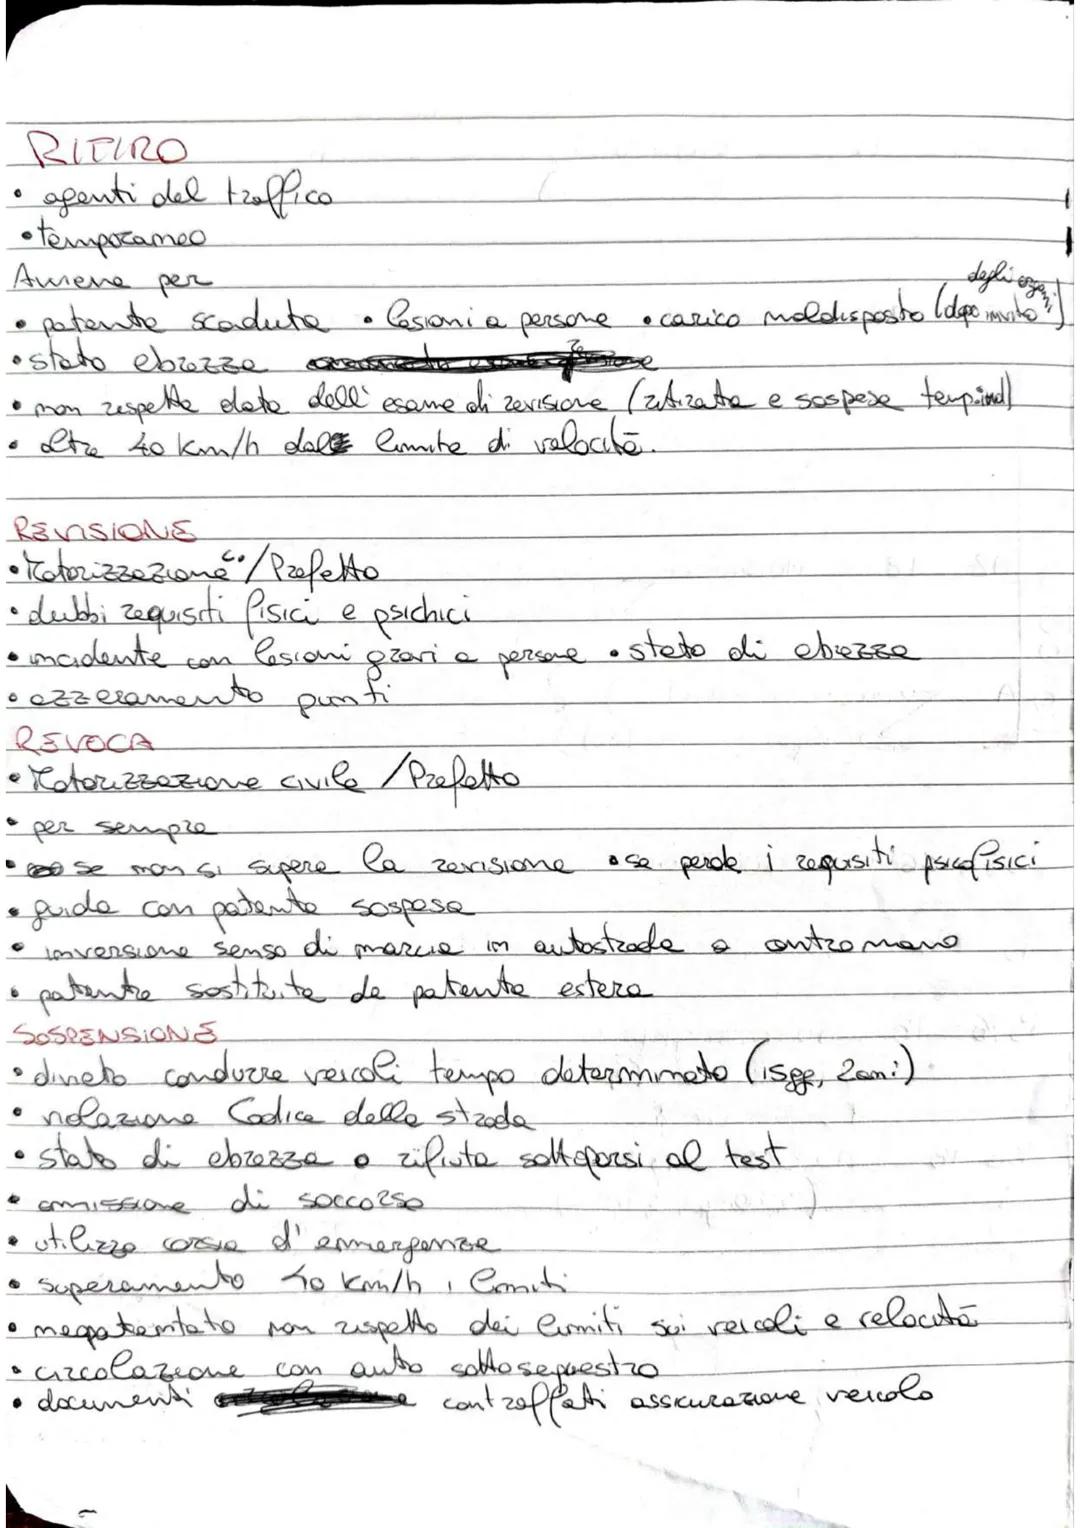 RITIRO
• agenti del traffico
• temporaneo
Avviene per
• patente scaduta • lesioni a persone • carico maldisposto (dopo invito degli organi)
• stato ebrezza
• non rispetta data dell'esame di revisione (ritirata e sospesa temp.ind)
• oltre 40 km/h dal limite di velocità.
REVISIONE
• Motorizzazione c./Prefetto
• dubbi requisiti fisici e psichici
• incidente con lesioni gravi a persone • stato di ebrezza
• azzeramento punti
REVOCA
• Motorizzazione civile / Prefetto
• per sempre
• se non si supera la revisione • se perde i requisiti psicofisici
• guida con patente sospesa
• inversione senso di marcia in autostrada o contromano
• patente sostituita da patente estera
SOSPENSIONE
• divieto condurre veicoli tempo determinato (15gg, 2anni)
• violazione Codice della strada
• stato di ebrezza o rifiuta sottoporsi al test
• omissione di soccorso
• utilizzo corsia d'emergenza
• superamento 40 km/h i limiti
• neopatentato non rispetta dei limiti sui veicoli e velocità
• circolazione con auto sotto sequestro
• documenti contraffatti assicurazione veicolo